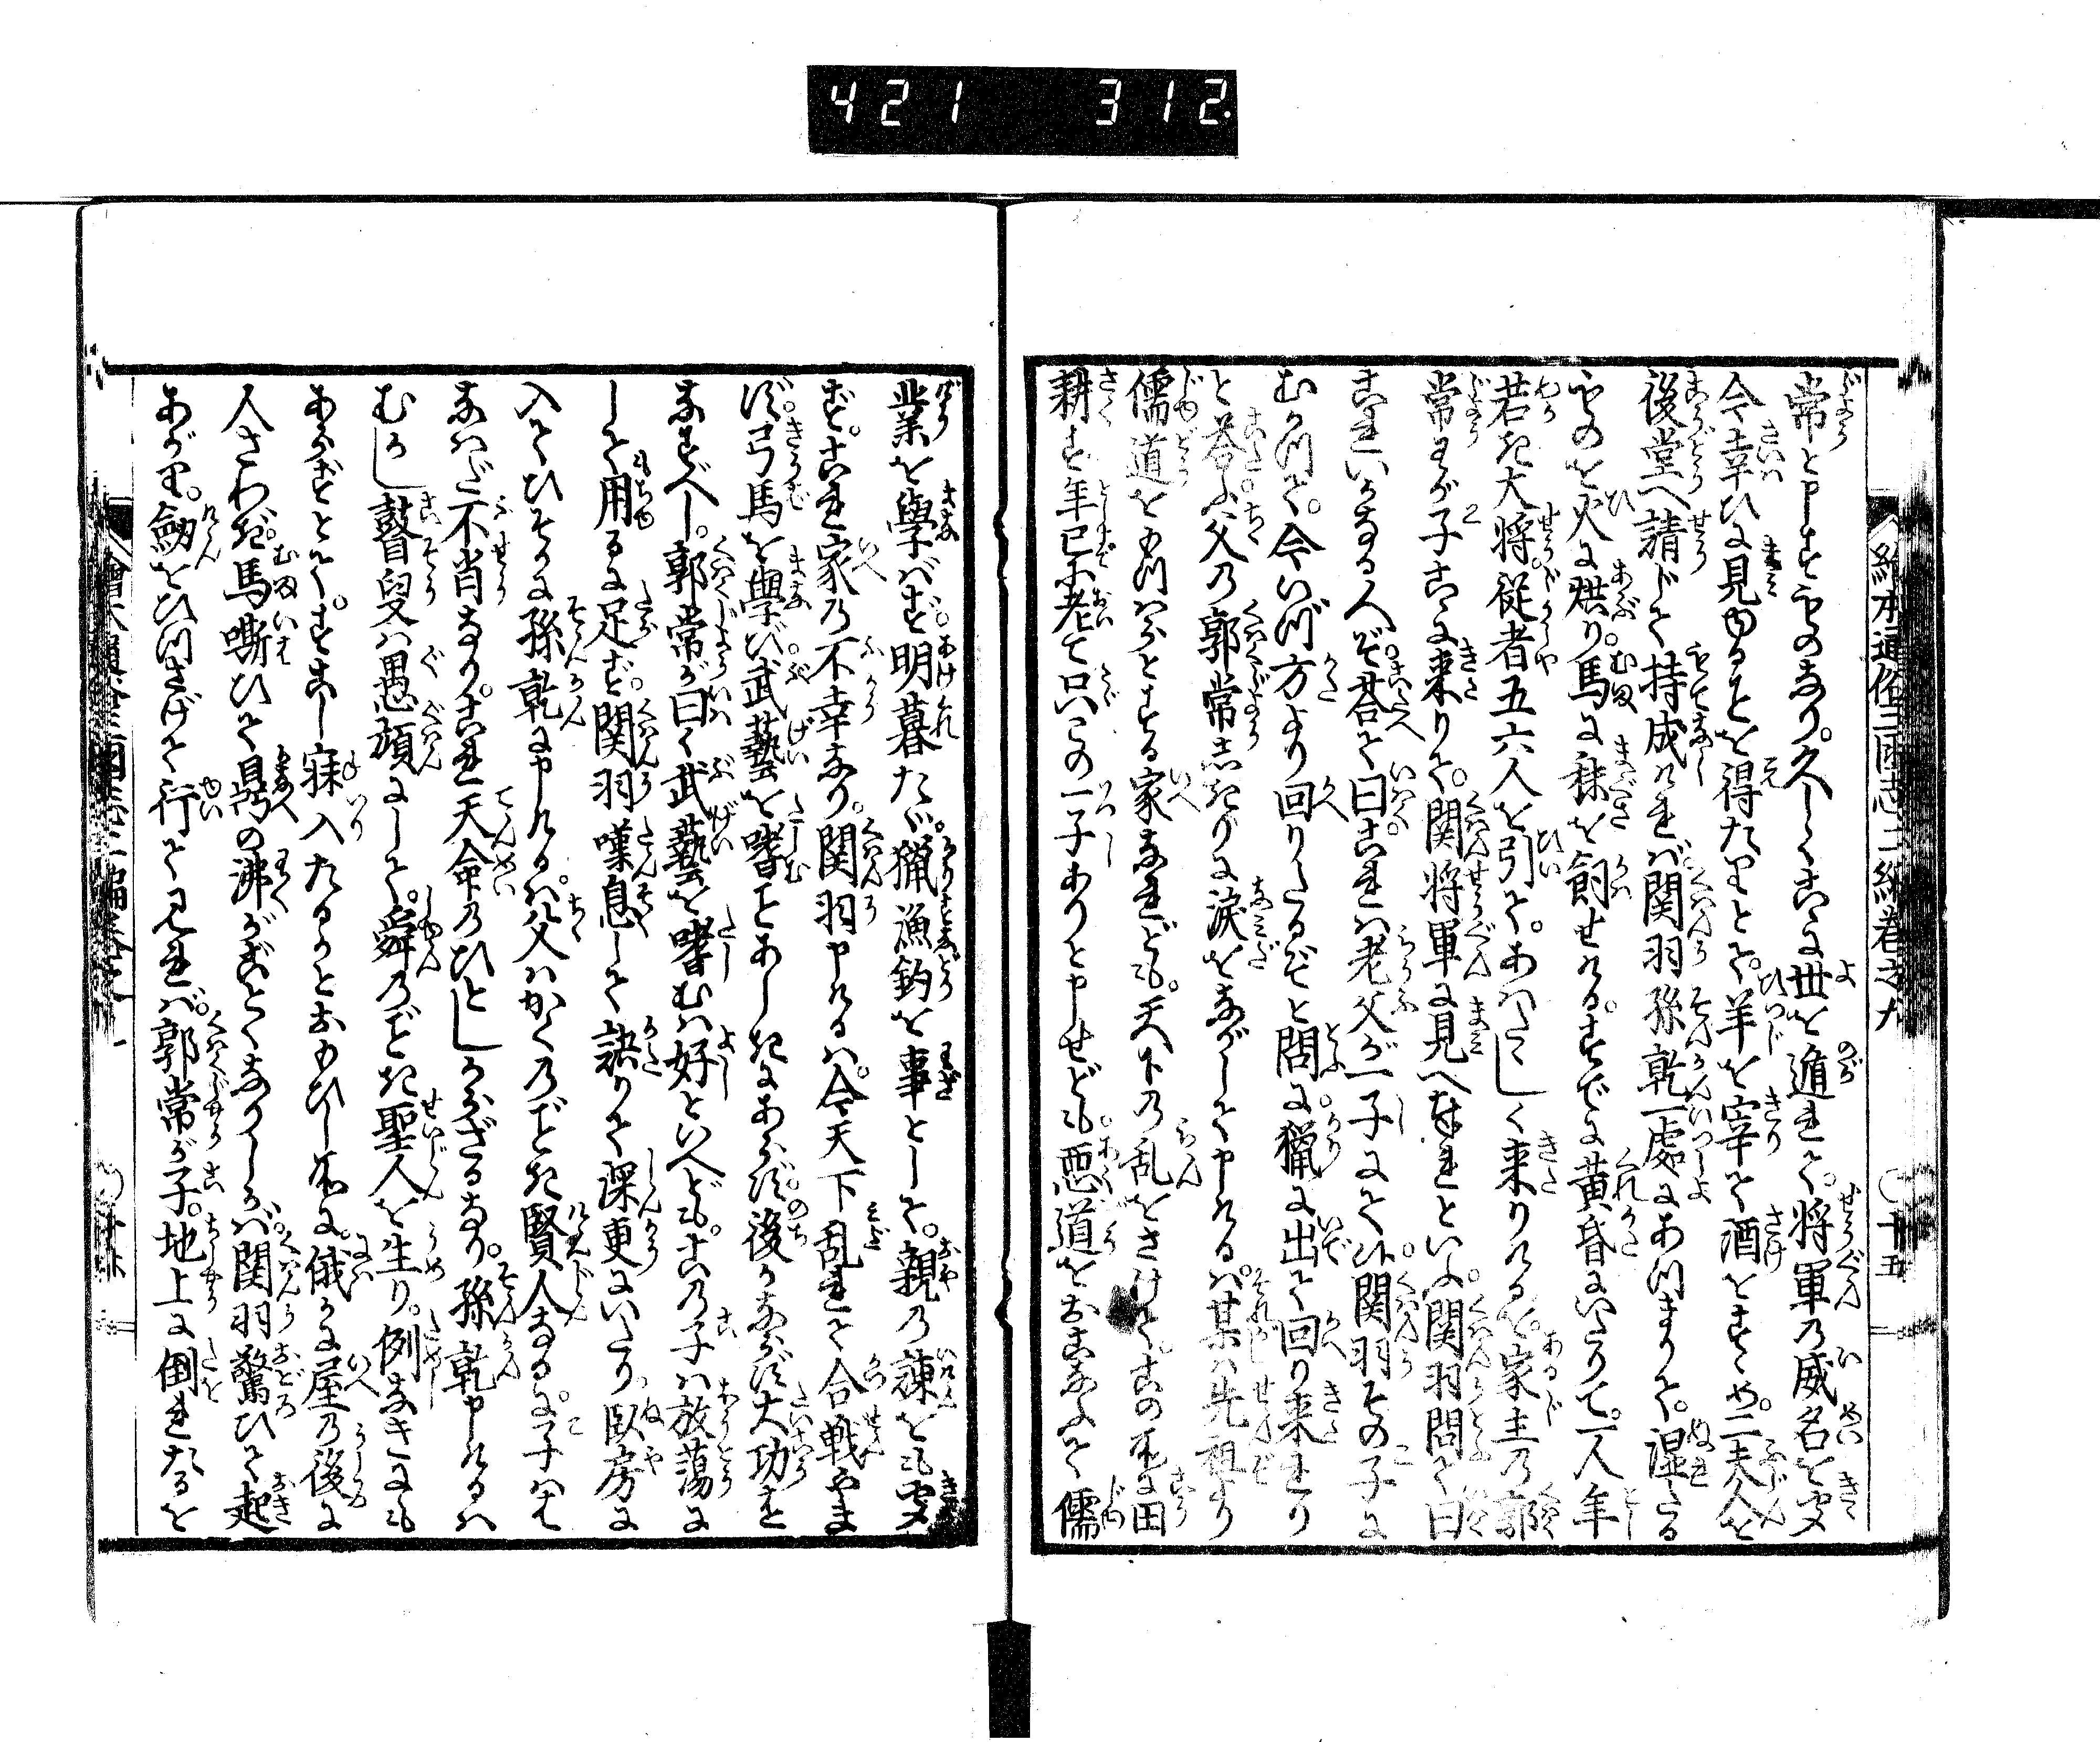 421 312.
絵本通俗三国志二編巻之九 ○十五
常と申すものなり。久しくこゝに世を遁れて。将軍の威名を聞
今幸ひに見ゆることを得たりとて。羊を宰て酒をすゝめ。二夫人を
後堂へ請じて持成ければ。関羽孫乾一處にあつまりて。湿たる
ものを火に烘り。馬に秣を飼せける。すでに黄昏にいたりて。一人年
若き大将従者五六人を引て。あはたゝしく来りければ。家主の郭
常わが子こゝに来りて。関将軍に見へ奉れといふ。関羽問て曰
これいかなる人ぞ。答て曰これは老父が一子にて候。関羽その子に
むかつて。今いづ方より回りたるぞと問に。猟に出て回り来れり
と答ふ。父の郭常しきりに涙をながして申けるは。某は先祖より
儒道をもつはらとする家なれども。天下の乱をさけて。この所に田
耕し。年已に老て只この一子ありと申せども。悪道をおこなふて儒
業を學ばず。明暮たゞ。猟漁釣を事として。親の諌をも聞
ず。これ家の不幸なり。関羽申けるは。今天下乱れて合戦やま
ず。弓馬を學び。武藝を嗜ことあしきにあらず。後かならず大功を
なすべし。郭常が曰く武藝を嗜むは好といへども。この子は放蕩に
して用るに足ず。関羽嘆息して訣りて深更にいたり。臥房に
入てひそかに孫乾に申けるは。父はかくのごとき賢人なるに。子はな
なはだ不肖なり。これ天命のひとしからざるなり。孫乾申けるは
むかし瞽叟は愚頑にして。舜のごとき聖人を生り。例なきにも
あらずとて。すこし寐入たるかとおもひし所に。俄かに屋の後に
人さわぎ。馬嘶ひて鼎の沸がごとくなりしかば。関羽驚ひて起
あがり。劔をひつさげて行て見れば。郭常が子。地上に倒れたるを